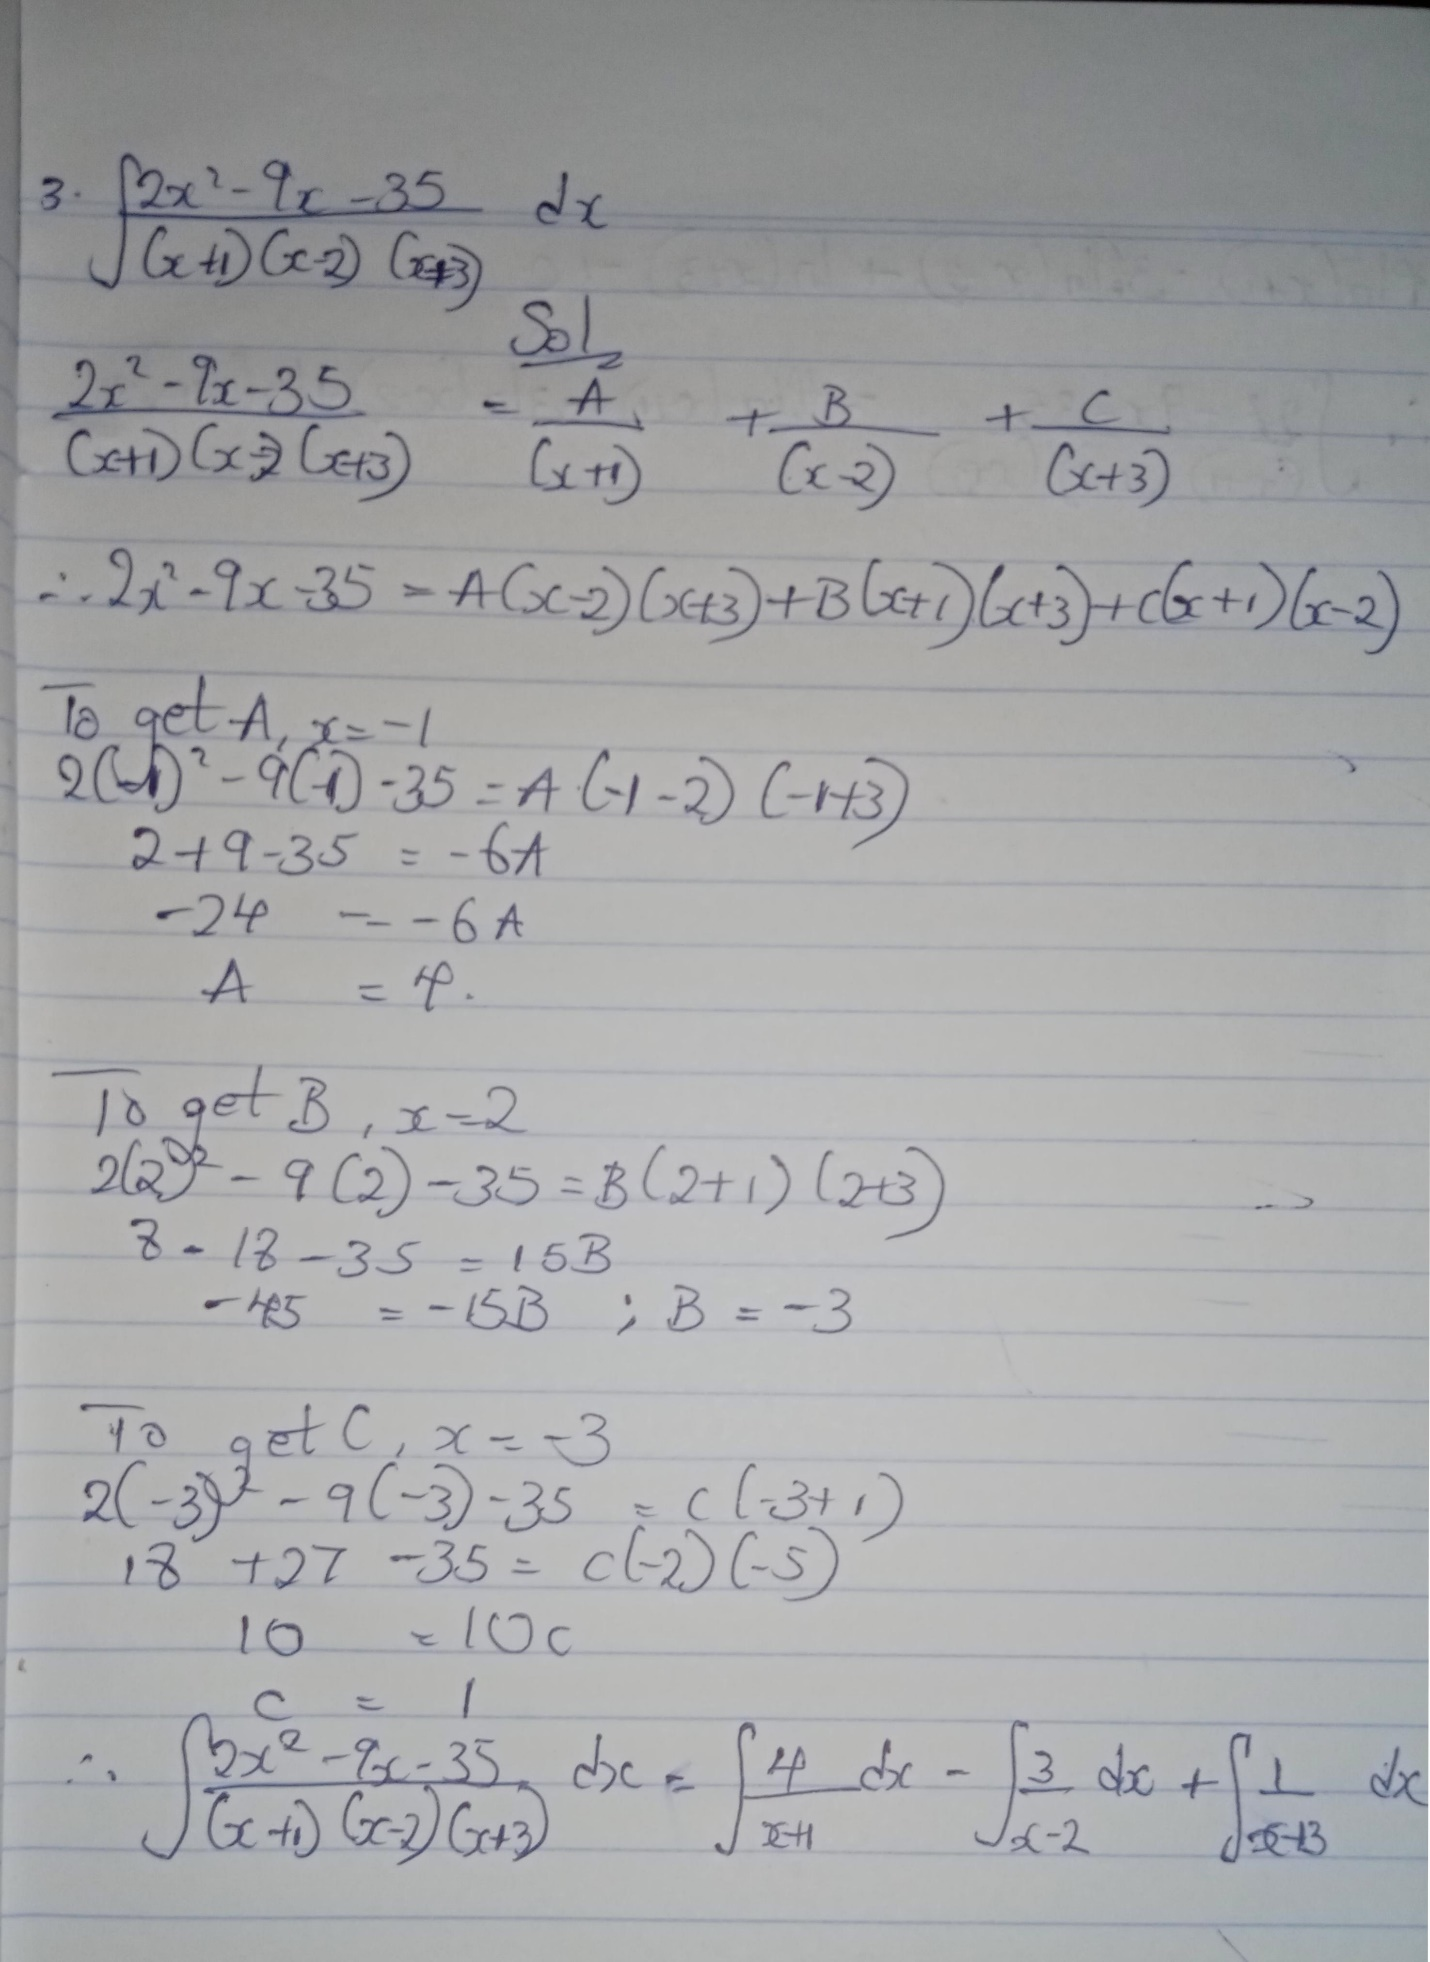 3. ∫ 2x² - 9x - 35 / (x+1)(x-2)(x+3) dx
Sol
2x² - 9x - 35 / (x+1)(x-2(x+3) = A / (x+1) + B / (x-2) + C / (x+3)
∴ 2x² - 9x - 35 = A(x-2)(x+3) + B(x+1)(x+3) + C(x+1)(x-2)
To get A, x = -1
2(-1)² - 9(-1) - 35 = A(-1-2)(-1+3)
2+9-35 = -6A
-24 = -6A
A = 4.
To get B, x = 2
2(2)² - 9(2) - 35 = B(2+1)(2+3)
8 - 18 - 35 = 15B
-45 = -15B ; B = -3
To get C, x = -3
2(-3)² - 9(-3) - 35 = C(-3+1)
18 + 27 - 35 = C(-2)(-5)
10 = 10C
C = 1
∴ ∫ 2x² - 9x - 35 / (x+1)(x-2)(x+3) dx = ∫ 4 / x+1 dx - ∫ 3 / x-2 dx + ∫ 1 / x+3 dx